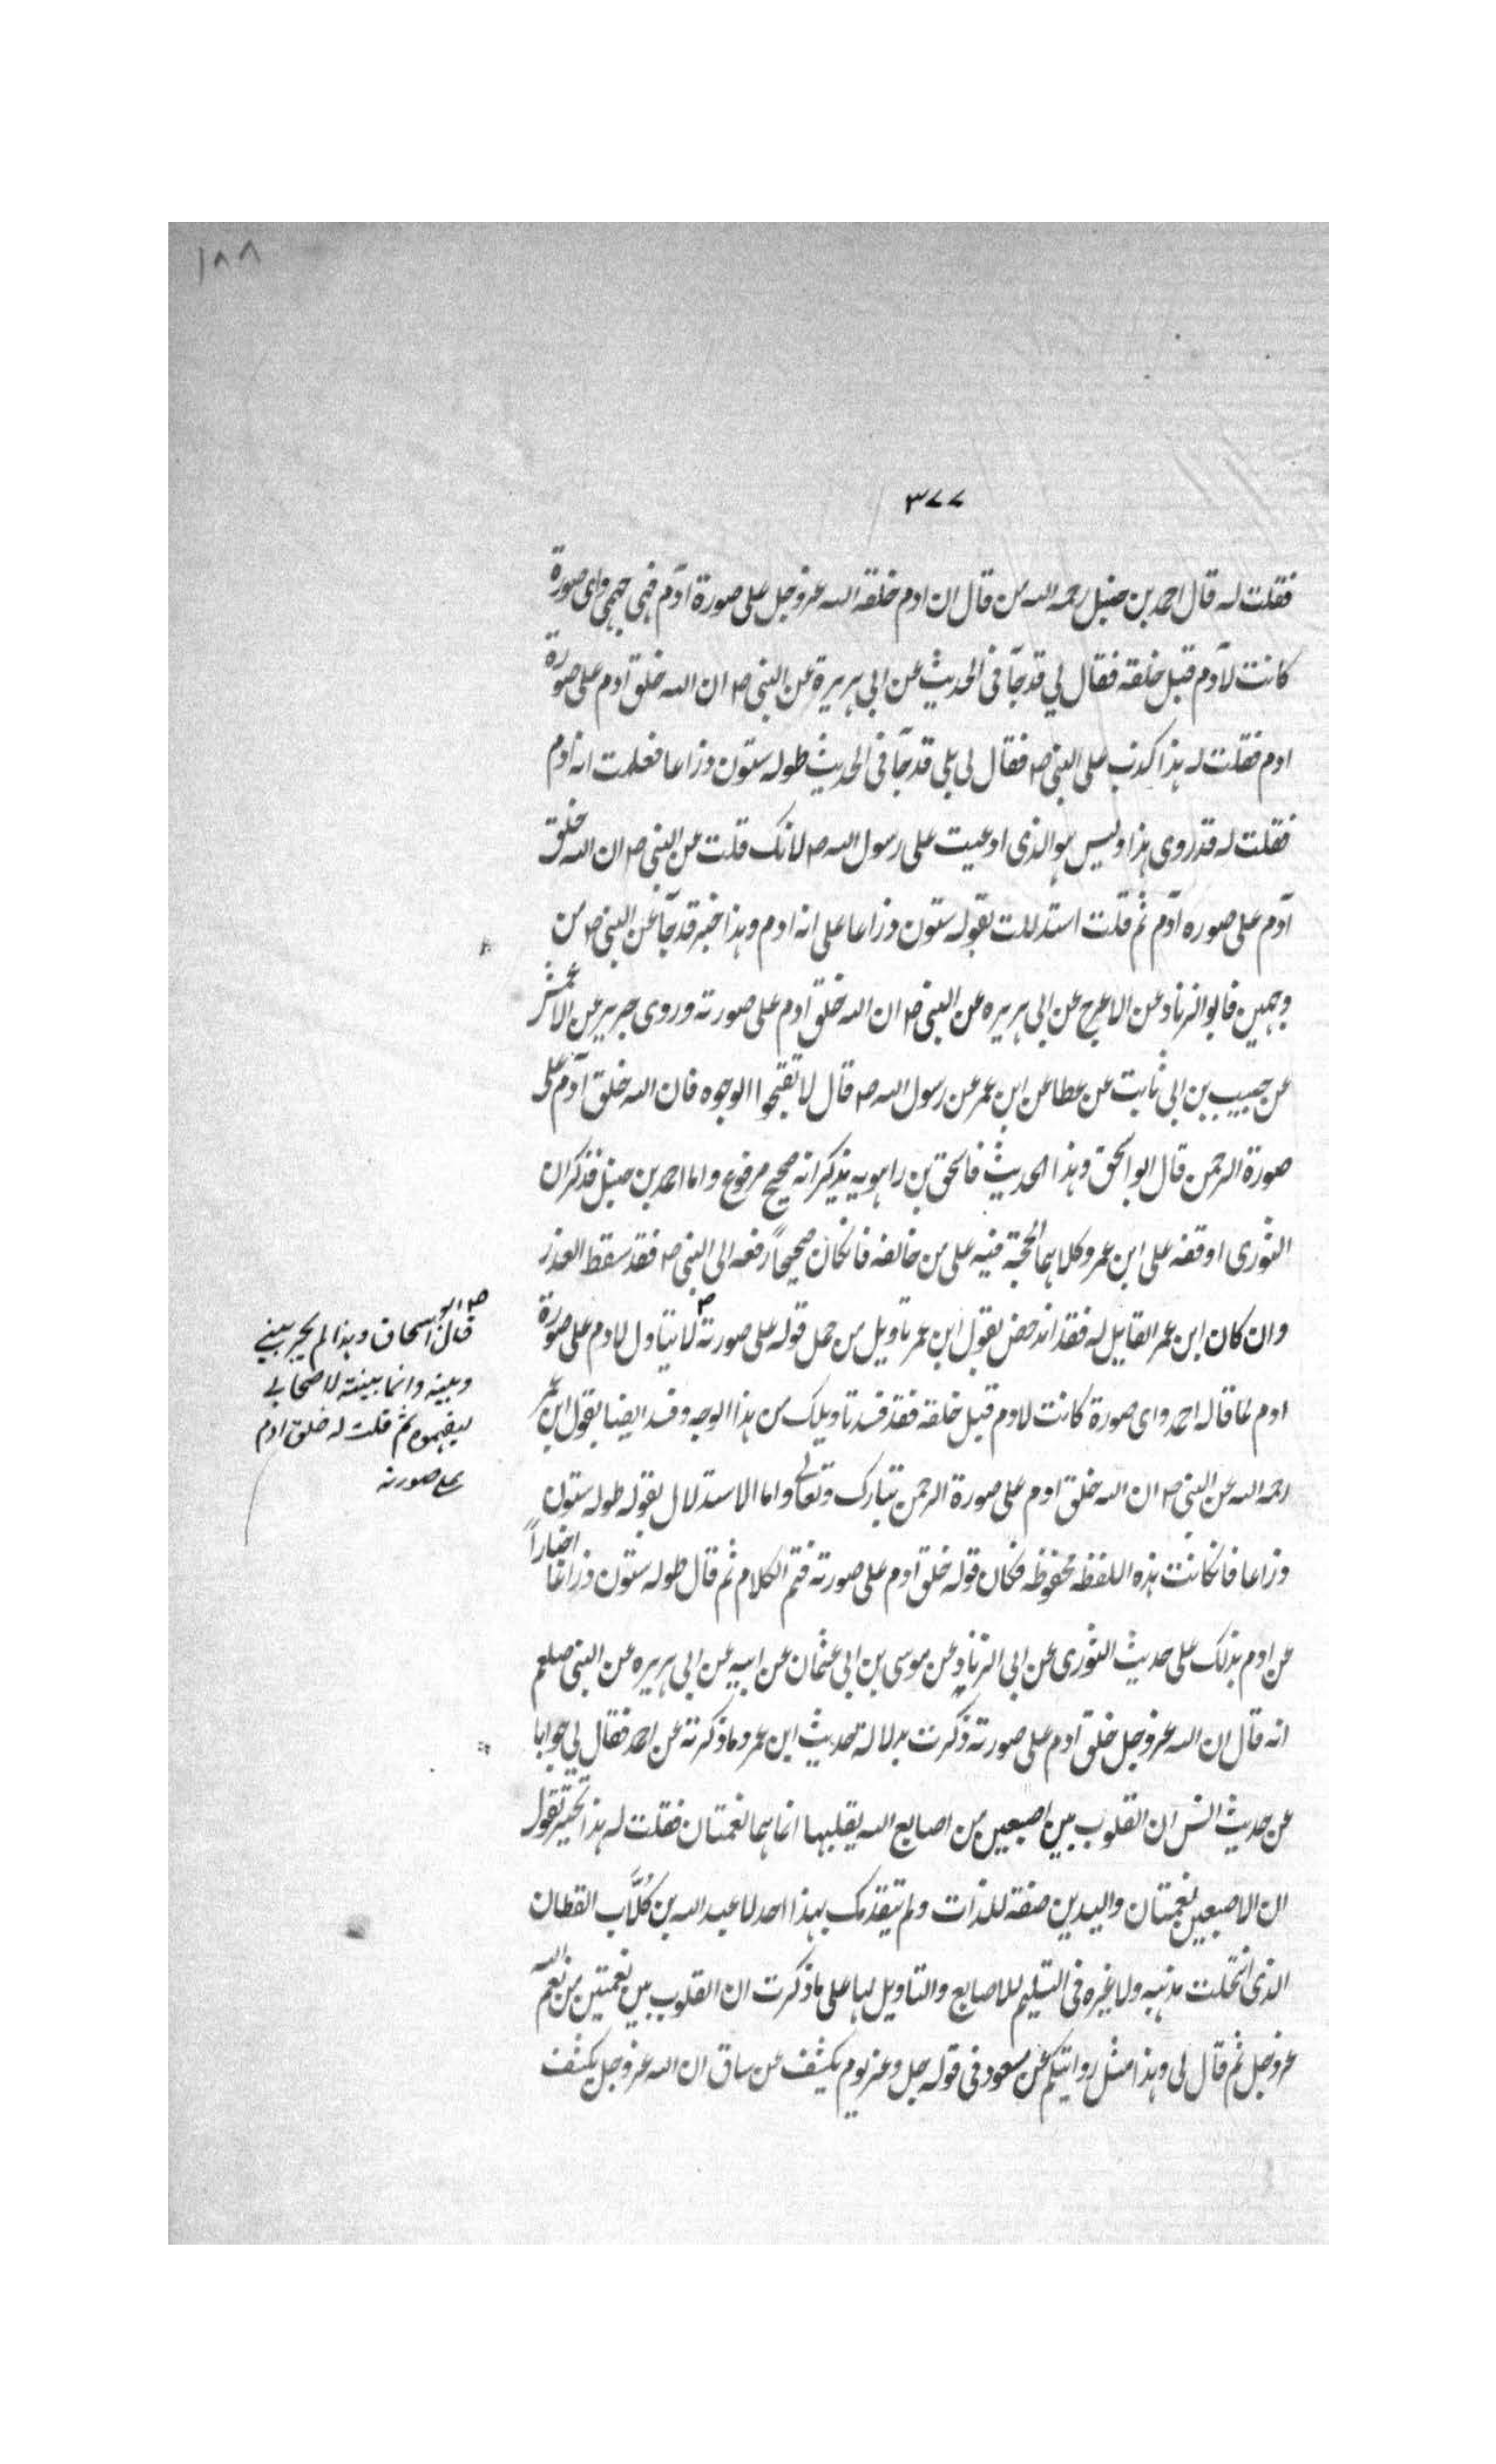 ١٨٨
٣٧٧
فقلت له قال احمد بن حنبل رحمه الله من قال ان ادم خلقه الله عز وجل على صورة آدم فهو جهمي واى صورة
كانت لآدم قبل خلقه فقال لي قد جآ فى الحديث عن ابى هريرة عن النبي ص ان الله خلق آدم على صورة
ادم فقلت له هذا كذب على النبي ص فقال لى بلى قد جآ فى الحديث طوله ستون ذراعا فعلمت انه آدم
فقلت له قد روى هذا وليس هو الذى ادعيت على رسول الله ص لانك قلت عن النبي ص ان الله خلق
آدم على صوره آدم ثم قلت استدللت بقوله ستون ذراعا على انه ادم وهذا خبر قد جآ عن النبي ص من
وجهين فابو الزناد عن الاعرج عن ابى هريره عن النبي ص ان الله خلق آدم على صورته وروى جرير عن الاعمش
عن حبيب بن ابى ثابت عن عطا عن ابن عمر عن رسول الله ص قال لا تقبحوا الوجوه فان الله خلق آدم على
صورة الرحمن قال ابو اسحق وهذا الحديث فاسحق بن راهويه يذكر انه صحيح مرفوع واما احمد بن حنبل فذكر ان
الثورى اوقفه على ابن عمر وكلاهما الحجة فيه على من خالفه فانكان صحيحاً رفعه الى النبي ص فقد سقط العذر
وان كان ابن عمر القايل له فقد اندحض بقول ابن عمر تاويل من حمل قوله على صورته لا يتاول لادم على صورة
ادم لما قاله احمد واى صورة كانت لادم قبل خلقه فقد فسد تاويلك من هذا الوجه وفسد ايضا بقول ابن عمر
رحمه الله عن النبي ص ان الله خلق آدم على صورة الرحمن تبارك وتعالى واما الاستدلال بقوله طوله ستون
ذراعا فانكانت هذه اللفظه محفوظه فكان قوله خلق آدم على صورته فتم الكلام ثم قال طوله ستون ذراعا اخباراً
عن ادم بذلك على حديث الثورى عن ابى الزناد عن موسى بن ابى عثمان عن ابيه عن ابى هريره عن النبي صلعم
انه قال ان الله عز وجل خلق آدم على صورته ذكرت بدلالة حديث ابن عمر وما ذكرته عن احمد فقال لى جوابا
عن حديث انس ان القلوب بين اصبعين من اصابع الله يقلبها انما هما نعمتان فقلت له هذا تقول
ان الاصبعين نعمتان واليدين صفة للذات ولم يتقدمك بهذا احد لا عبد الله بن كُلَّاب القطان
الذى انتحلت مذهبه ولا غيره فى التسليم للاصابع والتاويل لها على ما ذكرت ان القلوب بين نعمتين من نعم الله
عز وجل ثم قال لى وهذا مثل روايتكم عن مسعود فى قوله جل وعز يوم يكشف عن ساق ان الله عز وجل يكشف
ص
قال ابو اسحاق وهذا لم يجر بيني
وبينه وانما بينته لاصحابي
ليفهموه ثم قلت له خلق ادم
على صورته